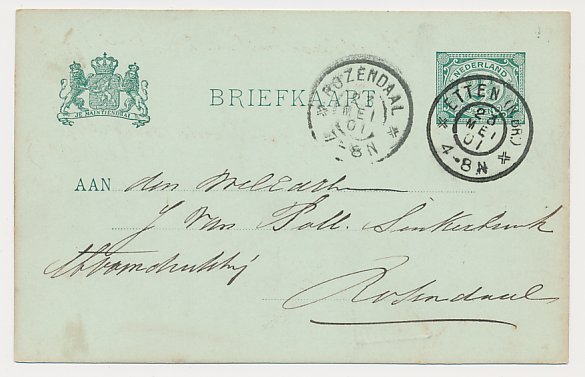 JE MAINTIENDRAI
BRIEFKAART
NEDERLAND
ROZENDAAL
MEI
01
7-8N
ETTEN (N.BR.)
28
MEI
01
4-8N
AAN den WelEd
J van Poll
Stoomdrukkerij
Rosendaal